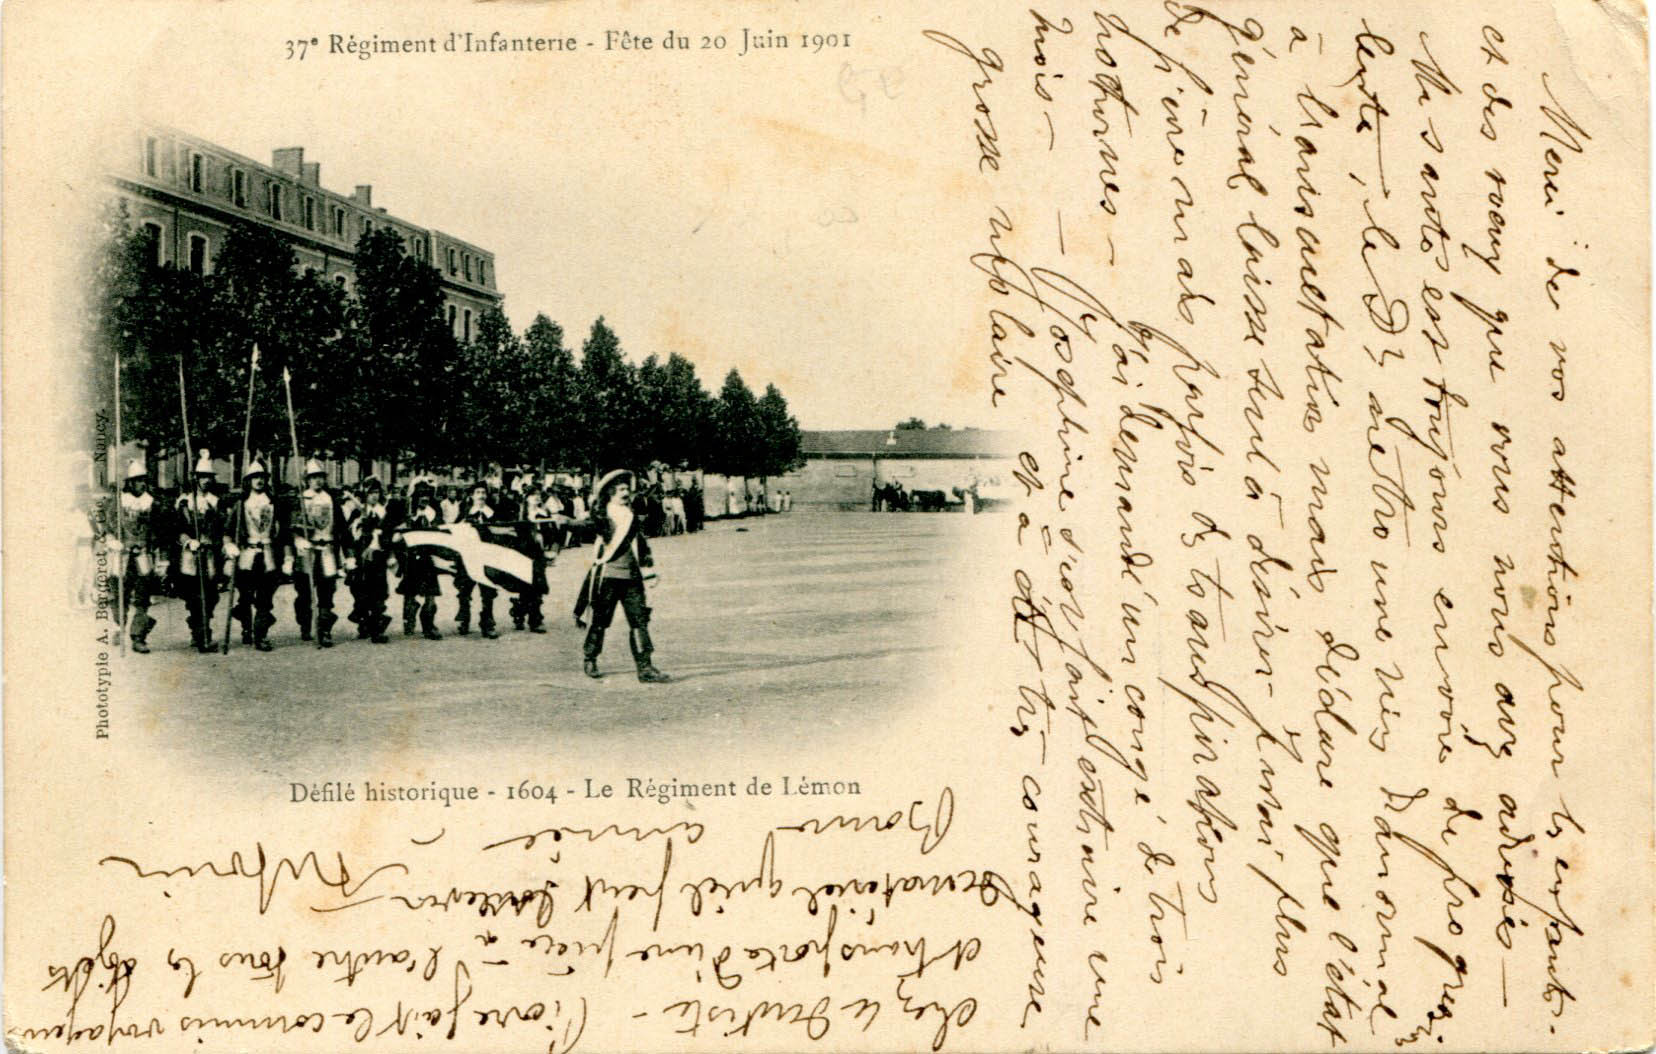 37e Régiment d'Infanterie - Fête du 20 Juin 1901
Phototypie A. Bergeret & Cie - Nancy.
Défilé historique - 1604 - Le Régiment de Lémon
Merci de vos attentions pour les enfants -
et des voeux que vous nous avez adressés -
Ma santé est toujours en voie de progrès
lente, le Dr me trouve rien d'anormal
à l'auscultation mais déclare que l'état
général laisse seul à désirer - J'n'ai plus
de fièvre mais parfois des transpirations
nocturnes - J'ai demandé un congé de trois
mois - - Joséphine s'est fait extraire une
grosse molaire et a été très courageuse
chez le dentiste - Pierre fait le commis voyageur
et transporte d'une pièce à l'autre tous les objets
qu'il peut
Bonne année -